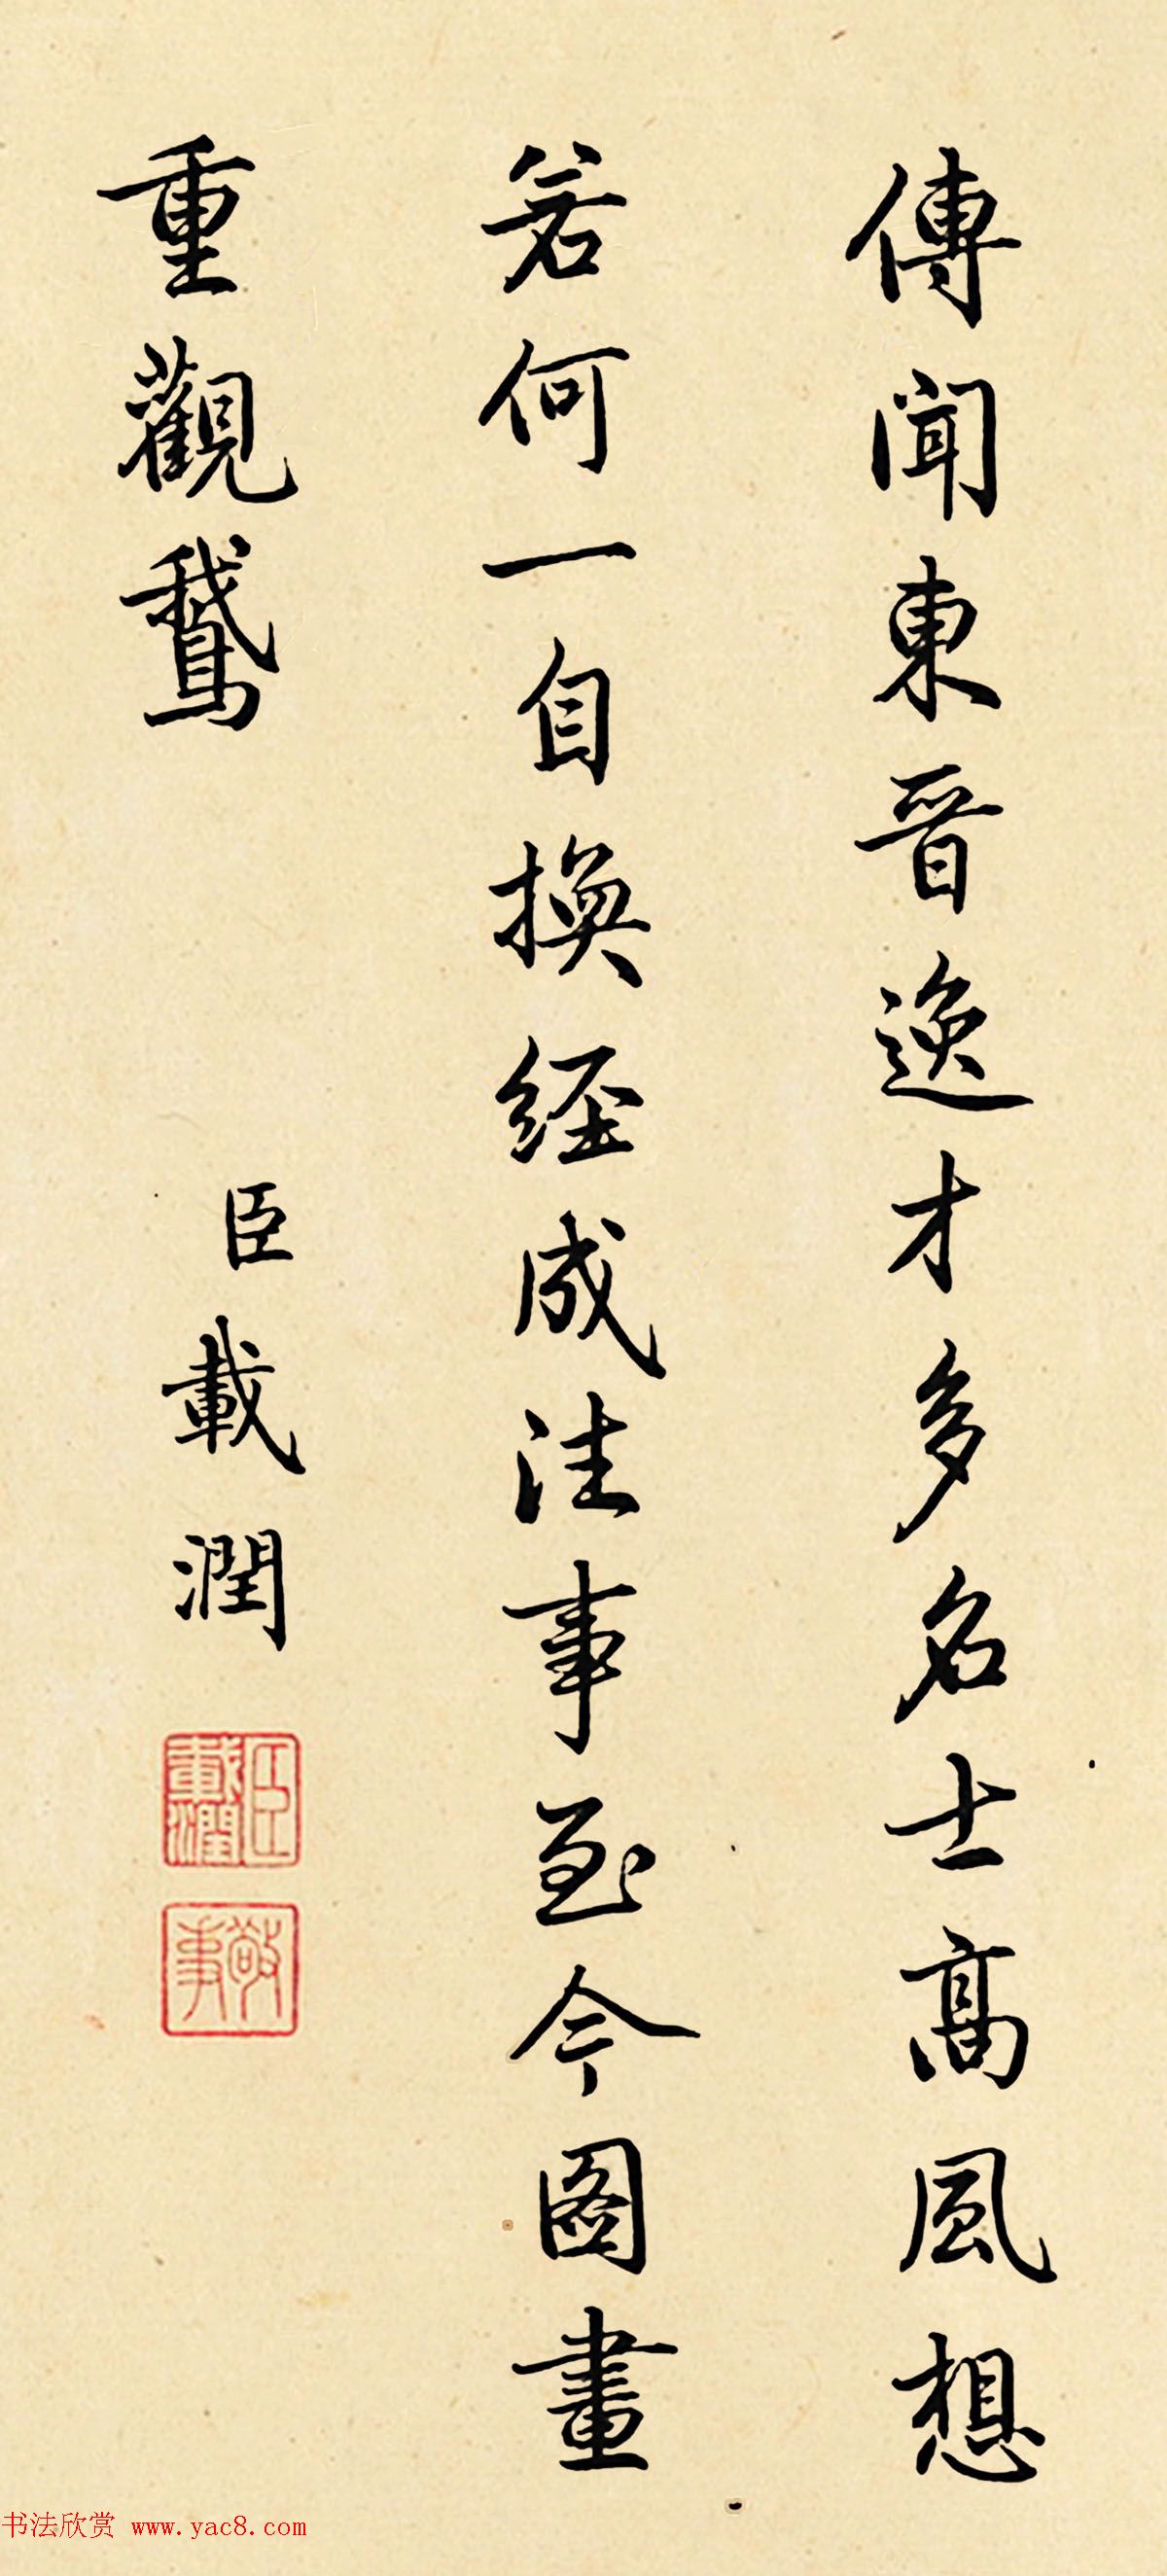 傳聞東晉逸才多名士高風想
若何一自換經成往事至今圖畫
重觀鵞
臣載潤
臣載潤
敬事
书法欣赏 www.yac8.com